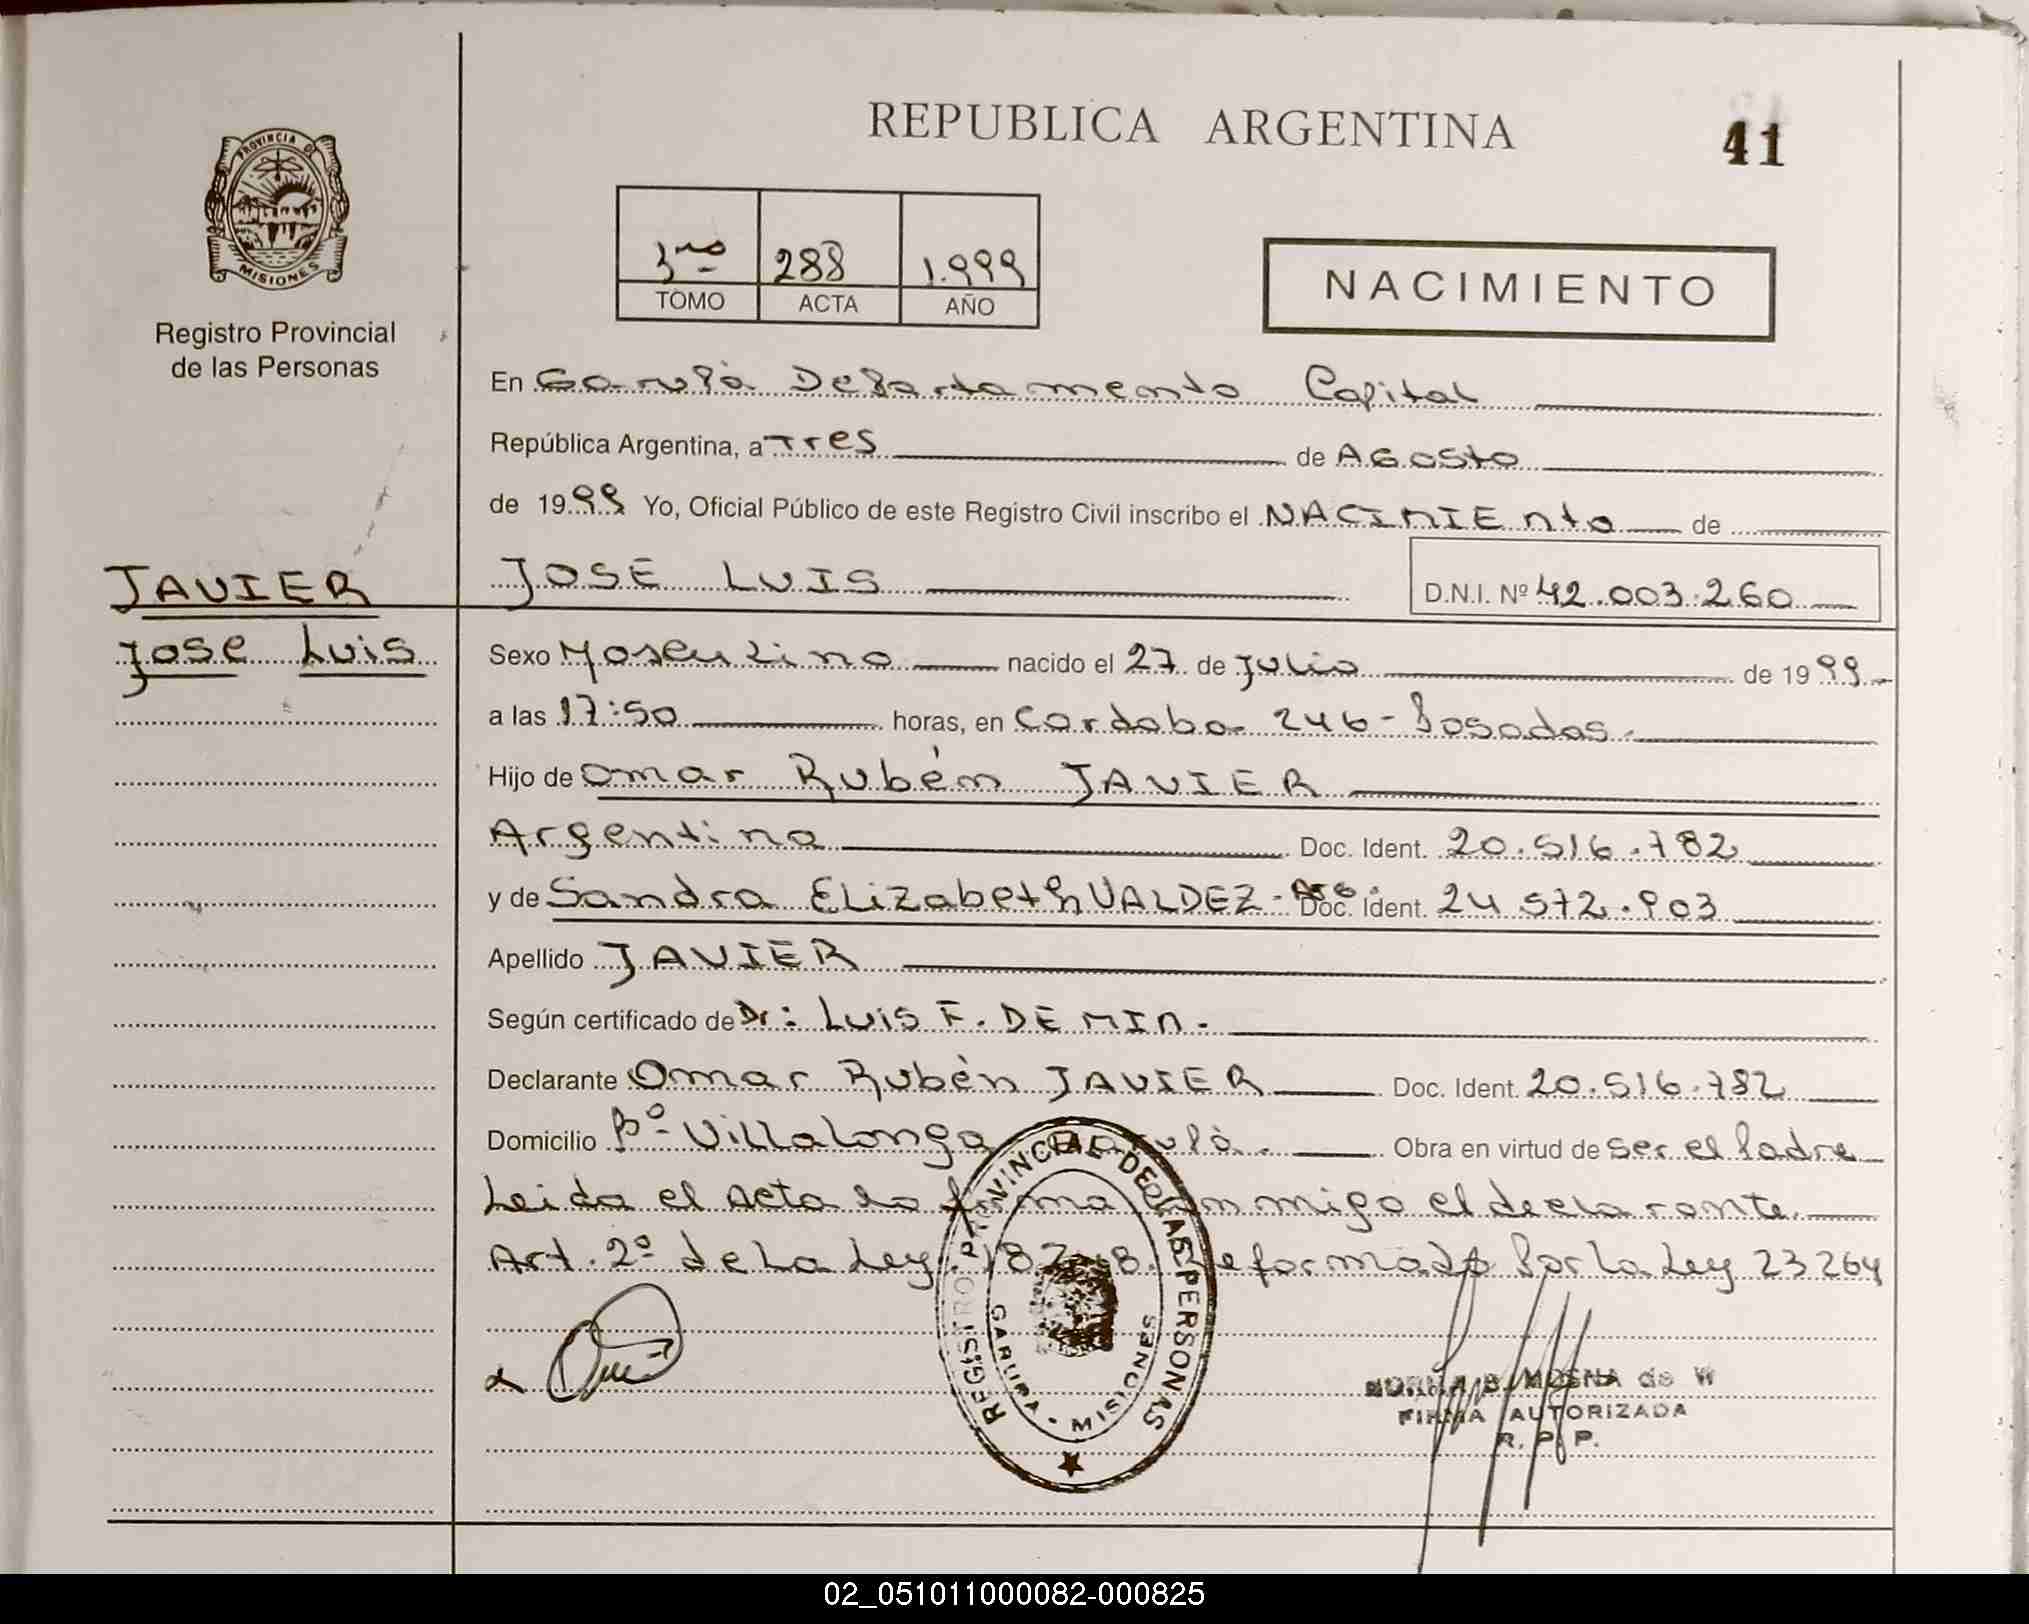 REPUBLICA ARGENTINA
41
PROVINCIA DE MISIONES
Registro Provincial
de las Personas
3ro 288 1.999
TOMO ACTA AÑO
NACIMIENTO
En Garupà Departamento Capital
República Argentina, a Tres de Agosto
de 1999 Yo, Oficial Público de este Registro Civil inscribo el NACIMIENTO de
JOSE LUIS D.N.I. Nº 42.003.260
JAVIER
Jose Luis
Sexo Masculino nacido el 27 de Julio de 1999
a las 17:50 horas, en Cordoba 246 - Posadas.
Hijo de Omar Rubén JAVIER
Argentino Doc. Ident. 20.516.782
y de Sandra Elizabeth VALDEZ - Arg. Doc. Ident. 24 572.903
Apellido JAVIER
Según certificado de Dr: Luis F. DE MIN.
Declarante Omar Rubèn JAVIER Doc. Ident. 20.516.782
Domicilio Bº Villalonga Garupà. Obra en virtud de ser el Padre
Leida el acta la firma conmigo el declarante.
Art. 2º de La Ley 18248 Reformado Por la Ley 23264
REGISTRO PROVINCIAL DE LAS PERSONAS
GARUPA - MISIONES
NORMA B. MOSNA de W
FIRMA AUTORIZADA
R. P. P.
02_051011000082-000825